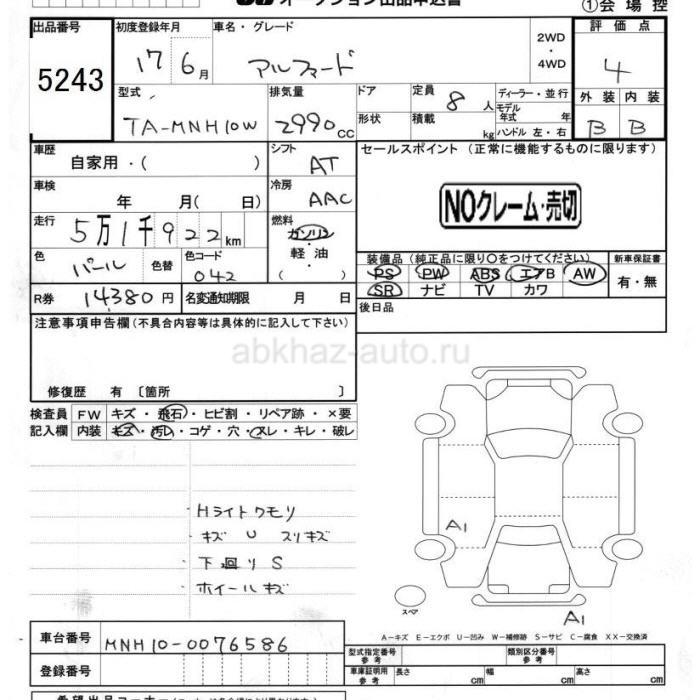 オークション出品申込書
①会場控
出品番号
5243
初度登録年月
17 6月
車名・グレード
アルファード
2WD
・
4WD
評価点
4
型式
TA-MNH10W
排気量
2990cc
ドア
形状
定員
8人
積載
kg
ディーラー・並行
モデル年式 年
ハンドル 左・右
外装 内装
B B
車歴
自家用・( )
シフト
AT
セールスポイント(正常に機能するものに限ります)
NOクレーム・売切
車検
年 月( 日)
冷房
AAC
走行
5万1千922km
燃料
ガソリン
・
軽油
( )
色
パール
色替
色コード
042
装備品(純正品に限り○をつけてください)
新車保証書
PS PW ABS エアB AW
SR ナビ TV カワ
有・無
R券
14380円
名変通知期限 月 日
後日品
注意事項申告欄(不具合内容等は具体的に記入して下さい)
abkhaz-auto.ru
修復歴 有〔箇所 〕
検査員 FW キズ・飛石・ヒビ割・リペア跡・×要
記入欄 内装 キズ・汚レ・コゲ・穴・スレ・キレ・破レ
Hライトクモリ
キズ U スリキズ
下廻りS
ホイールキズ
A1
スペア
A1
A-キズ E-エクボ U-凹み W-補修跡 S-サビ C-腐食 XX-交換済
車台番号
MNH10-0076586
登録番号
型式指定番号
参考
類別区分番号
参考
車庫証明用
参考
長さ cm 幅 cm 高さ cm